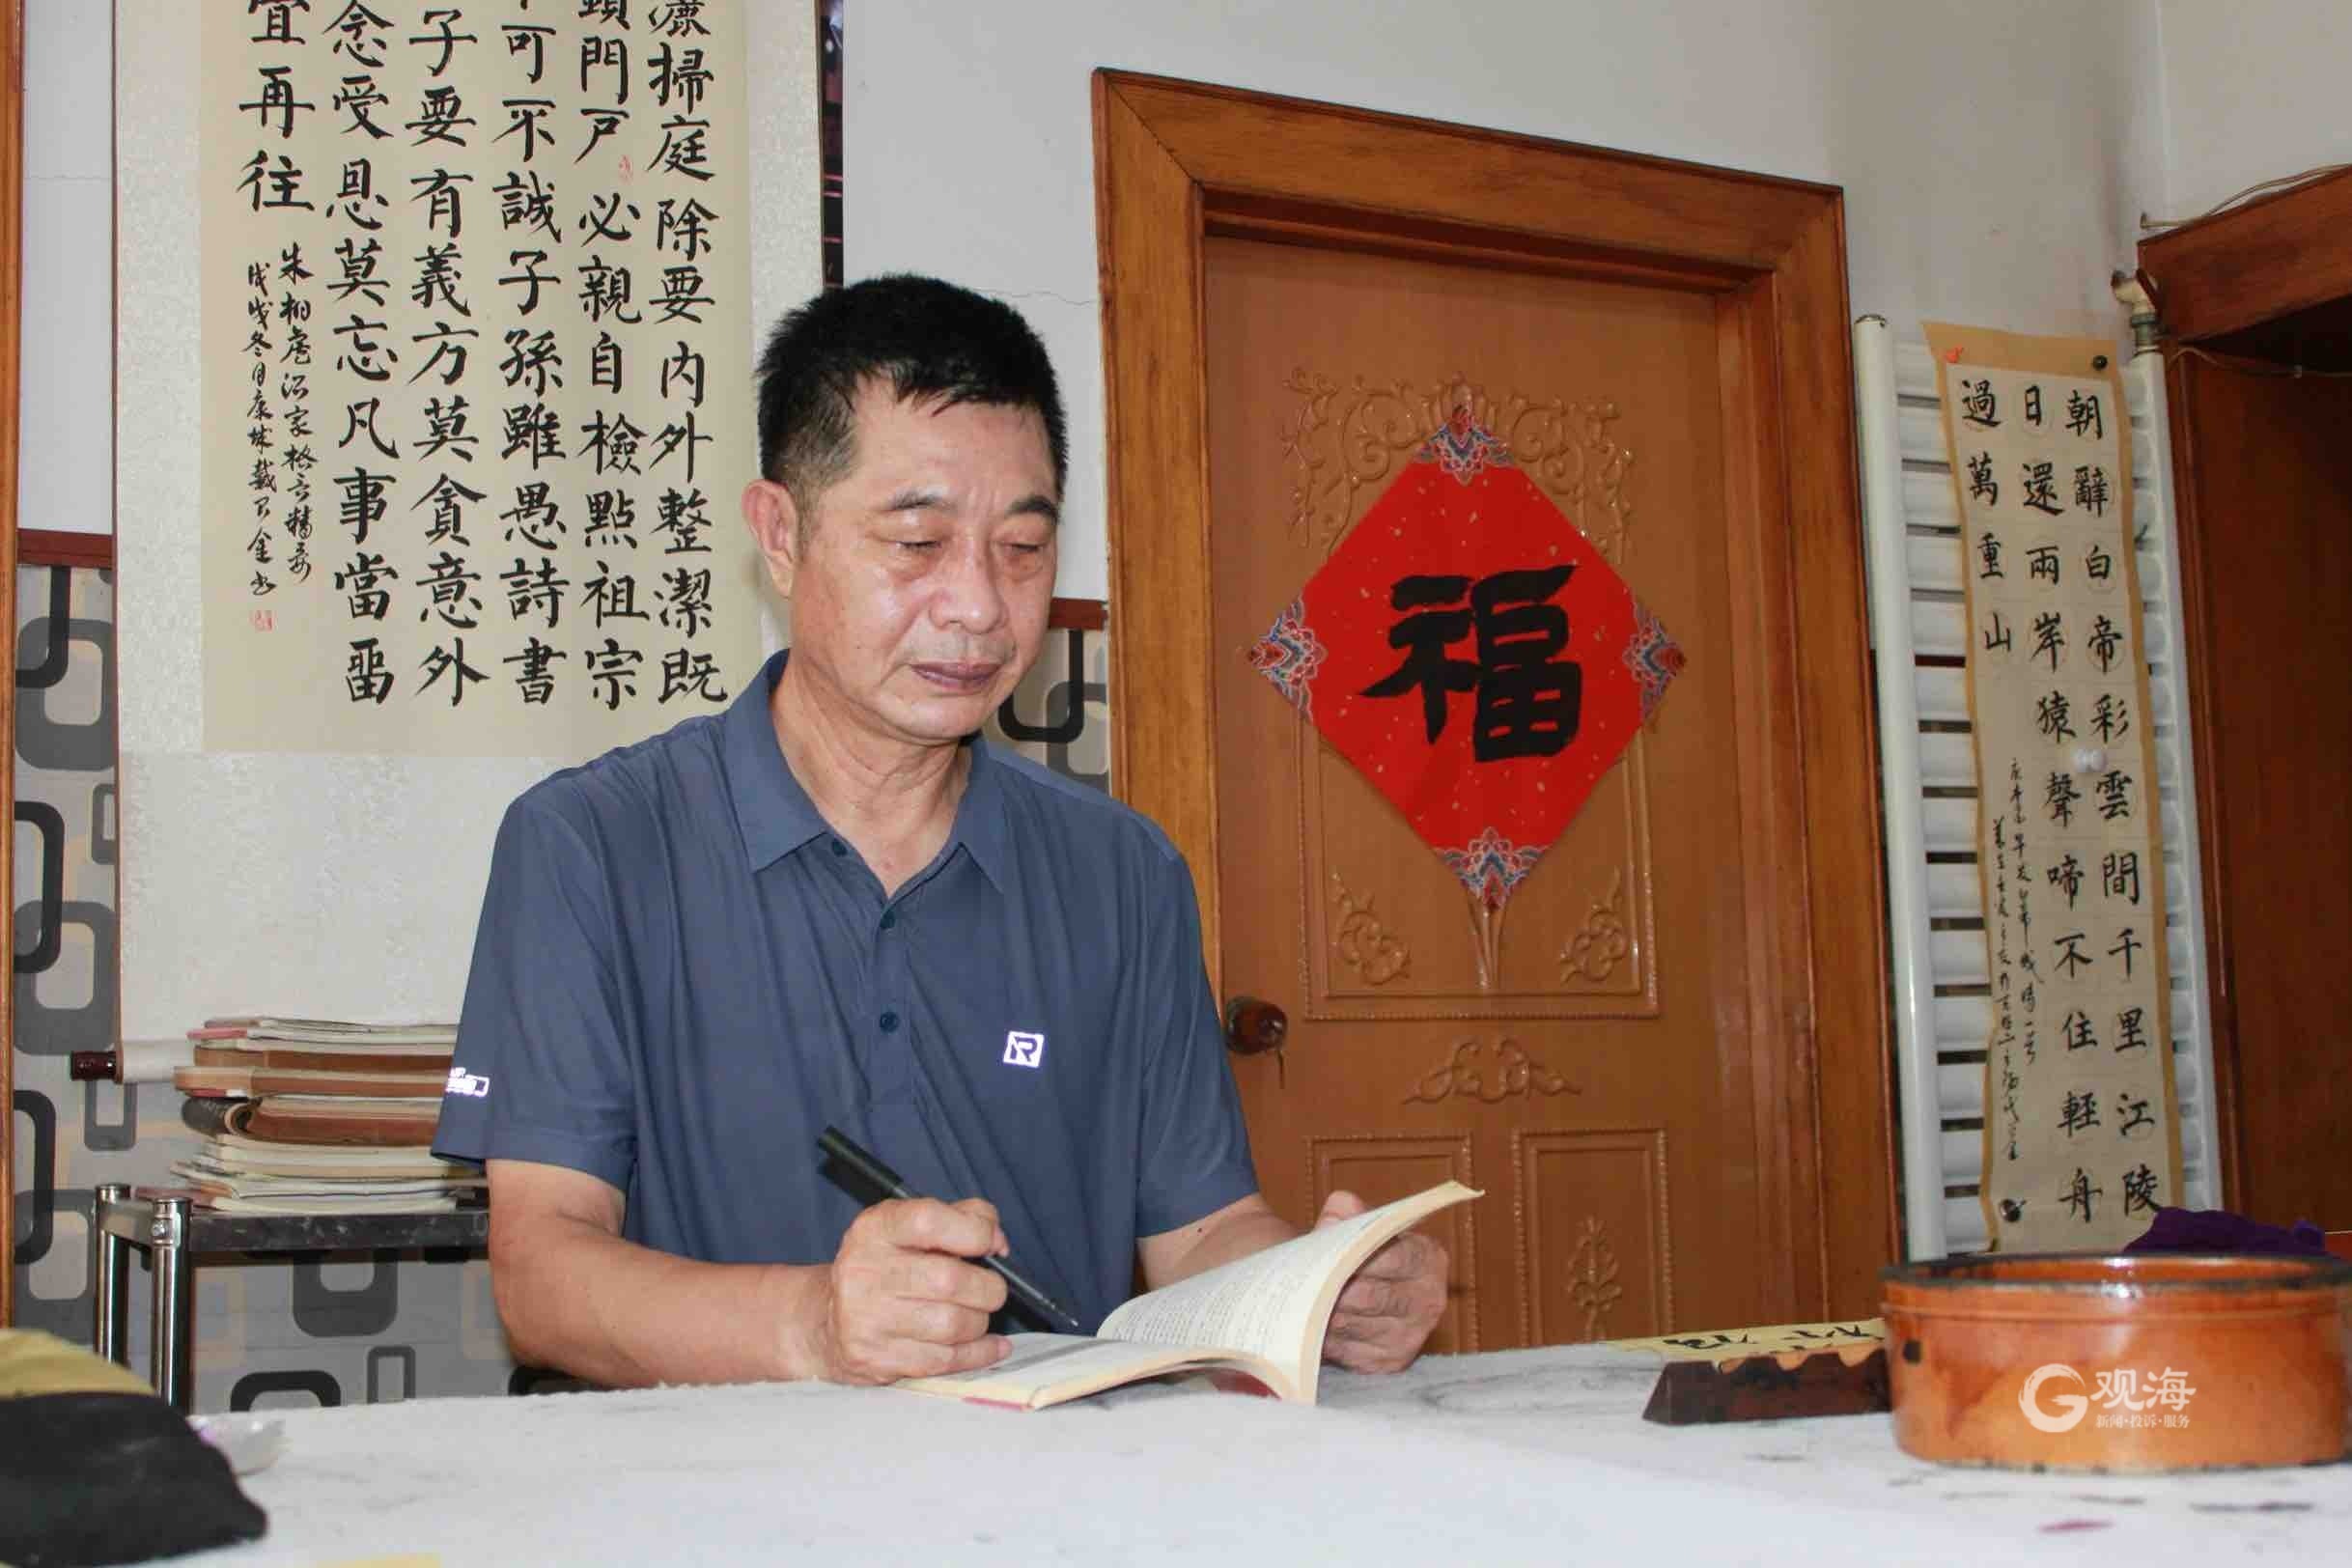 掃庭除要内外整潔既
鎖門户必親自檢點祖宗
可不誠子孫雖愚詩書
子要有義方莫貪意外
念受恩莫忘凡事當畱
宜再往
朱柏廬治家格言
戊戌冬月
福
朝辭白帝彩雲間千里江陵
日還兩岸猿聲啼不住輕舟
過萬重山
R
观海
新闻·投诉·服务